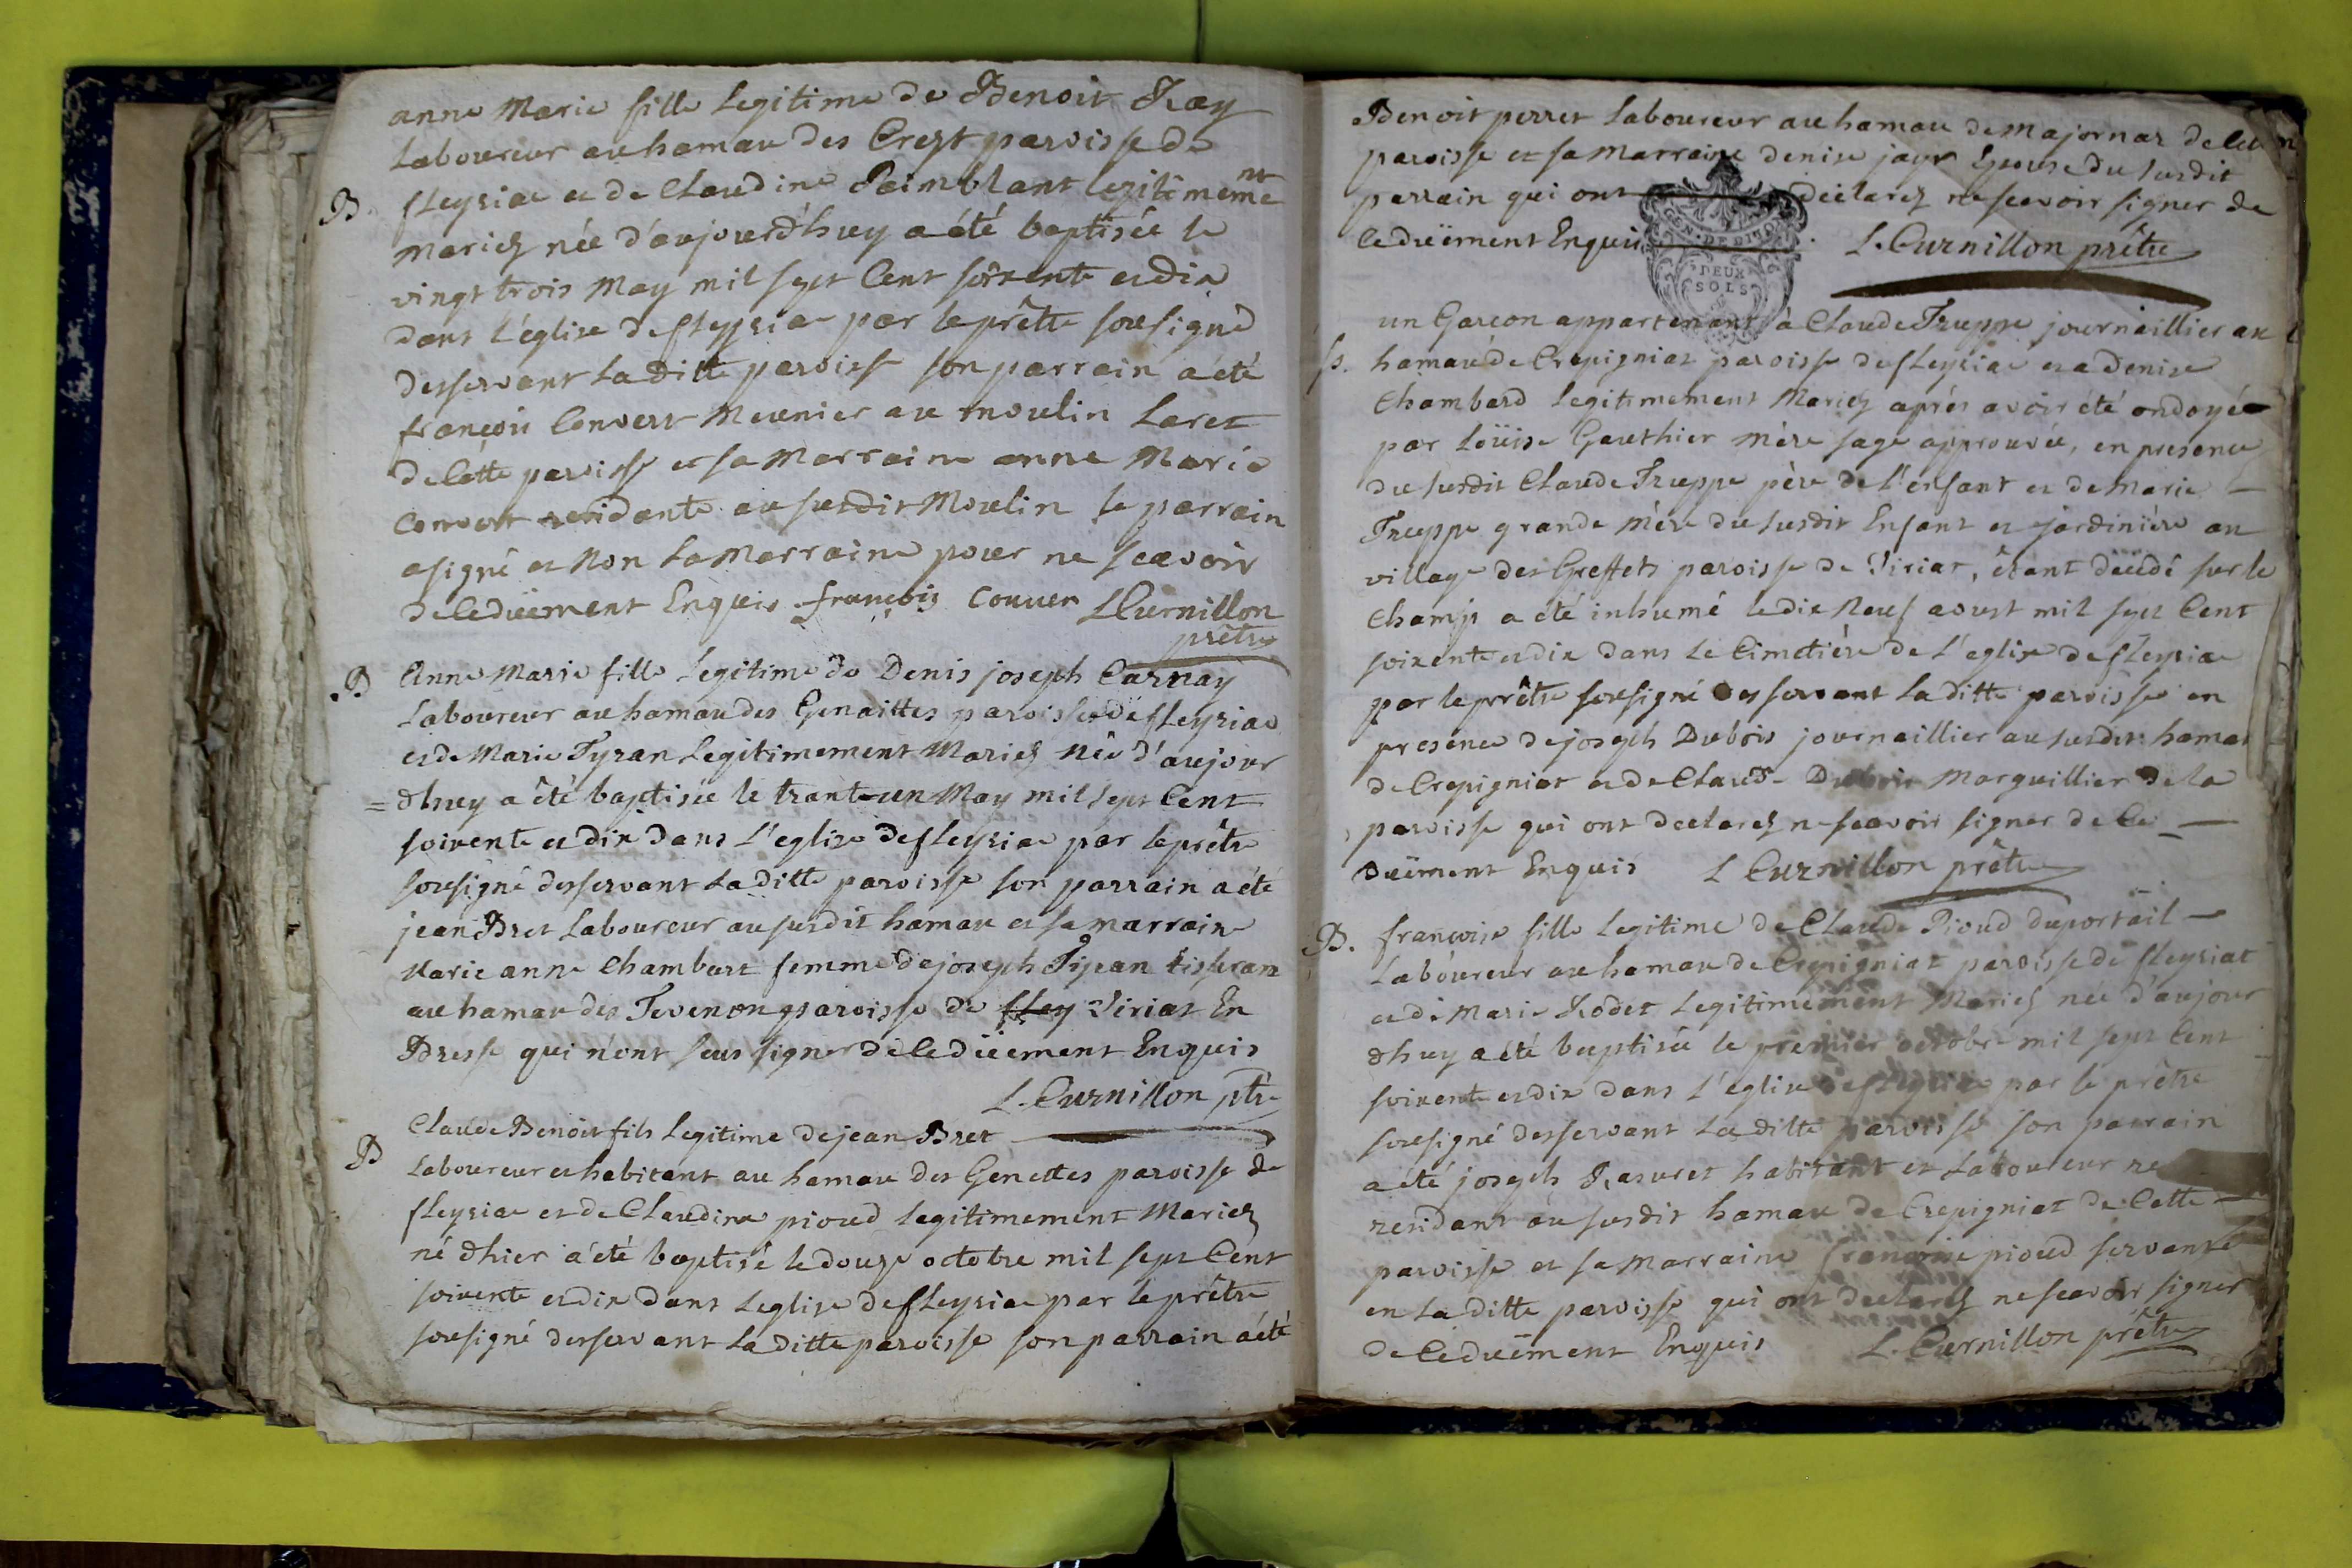 anne Marie fille Legitime de Benoit Ray
Laboureur au hamau des Crest paroisse de
B. fleyriac et de Claudine Paimblant legitimement
Mariez née d'aujourdhuy a été baptisée le
vingt trois May mil sept Cent soixente et dix
dans l'église de fleyriac par le prêtre sousigné
desservant la ditte paroisse son parrain a été
françois Convert Meunier au moulin Laret
de Cette paroisse et sa Marraine anne Marie
Convert residante au susdit Moulin le parrain
a signé et Non la Marraine pour ne scavoir
de Ce düement Enquis françois Conver L Curnillon
prêtre
B Anne Marie fille Legitime de Denis joseph Carnay
Laboureur au hamau des Genaittes paroisse de fleyriac
et de Marie Tyran Legitimement Mariez Née d'aujour
= dhuy a été baptisée le trante un May mil sept Cent
soixente et dix dans l'eglise de fleyriac par le prêtre
sousigné desservant la ditte paroisse son parrain a été
jean Bret Laboureur au susdit hamau et sa marraine
Marie anne Chambart femme de joseph Pijean tisseran
au hamau des Tevenon paroisse de fley Viriat En
Bresse qui n'ont scus signer de Ce düement Enquis
L. Curnillon ptr
Claude Benoit fils Legitime de jean Bret
B Laboureur et habitant au hamau des Genettes paroisse de
fleyriac et de Claudine pioud legitimement Mariez
né dhier a été baptisé le douze octobre mil sept Cent
soixente et dix dans l'eglise de fleyriac par le prêtre
sousigné desservant la ditte paroisse son parrain a été
Benoit perret Laboureur au hamau de majornas de
paroisse et sa Marraine denise jayr Epouse du susdit
parrain qui ont declarez ne scavoir signer de
Ce düement Enquis L. Curnillon prêtre
GEN. DE DIJON
DEUX
SOLS
un Garcon appartenant à Claude Fruppe journaillier au
S. hamau de Crepigniat paroisse de fleyriac et a Denise
Chambard Legitimement Mariez aprés avoir été ondoyé
par Loüise Gauthier mère sage approuvée, en presence
du susdit Claude Fruppe père de l'enfant et de Marie
Fruppe grande mère du susdit Enfant et jardinière au
village des Greffets paroisse de Viriat, étant décédé sur le
Champ a été inhumé le dix Neuf aoust mil sept Cent
soixente et dix dans le Cimetière de l'eglise de fleyriac
par le prêtre sousigné desservant la ditte paroisse en
presence de joseph Dubois journaillier au susdit hamau
de Crepigniat et de Claude Dubois Marguillier de la
paroisse qui ont declarez ne scavoir signer de Ce
Düement Enquis L Curnillon prêtre
B. françoise fille Legitime de Claude Pioud duportail
Laboureur au hamau de Crepigniat paroisse de fleyriat
et de Marie Rodet Legitimement Mariez née d'aujour
dhuy a été baptisée le premier octobre mil sept Cent
soixente et dix dans l'eglise de fleyriac par le prêtre
sousigné desservant la ditte paroisse son parrain
a été joseph Rasuret habitant et Laboureur re
residant au susdit hamau de Crepigniat de Cette
paroisse et sa Marraine françoise pioud servante
en la ditte paroisse qui ont declarez ne scavoir signer
de Ce düement Enquis L. Curnillon prêtre